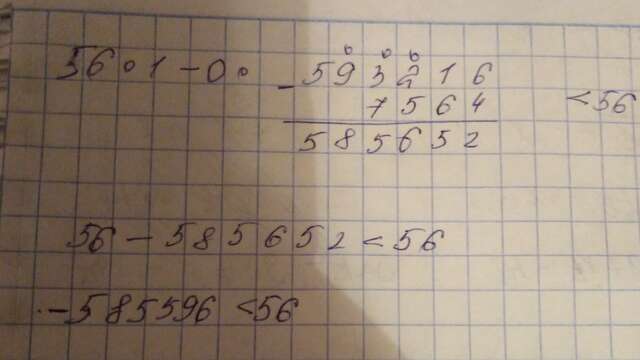 56 • 1 - 0 • - 593216
7564 < 56
585652
56 - 585652 < 56
-585596 < 56